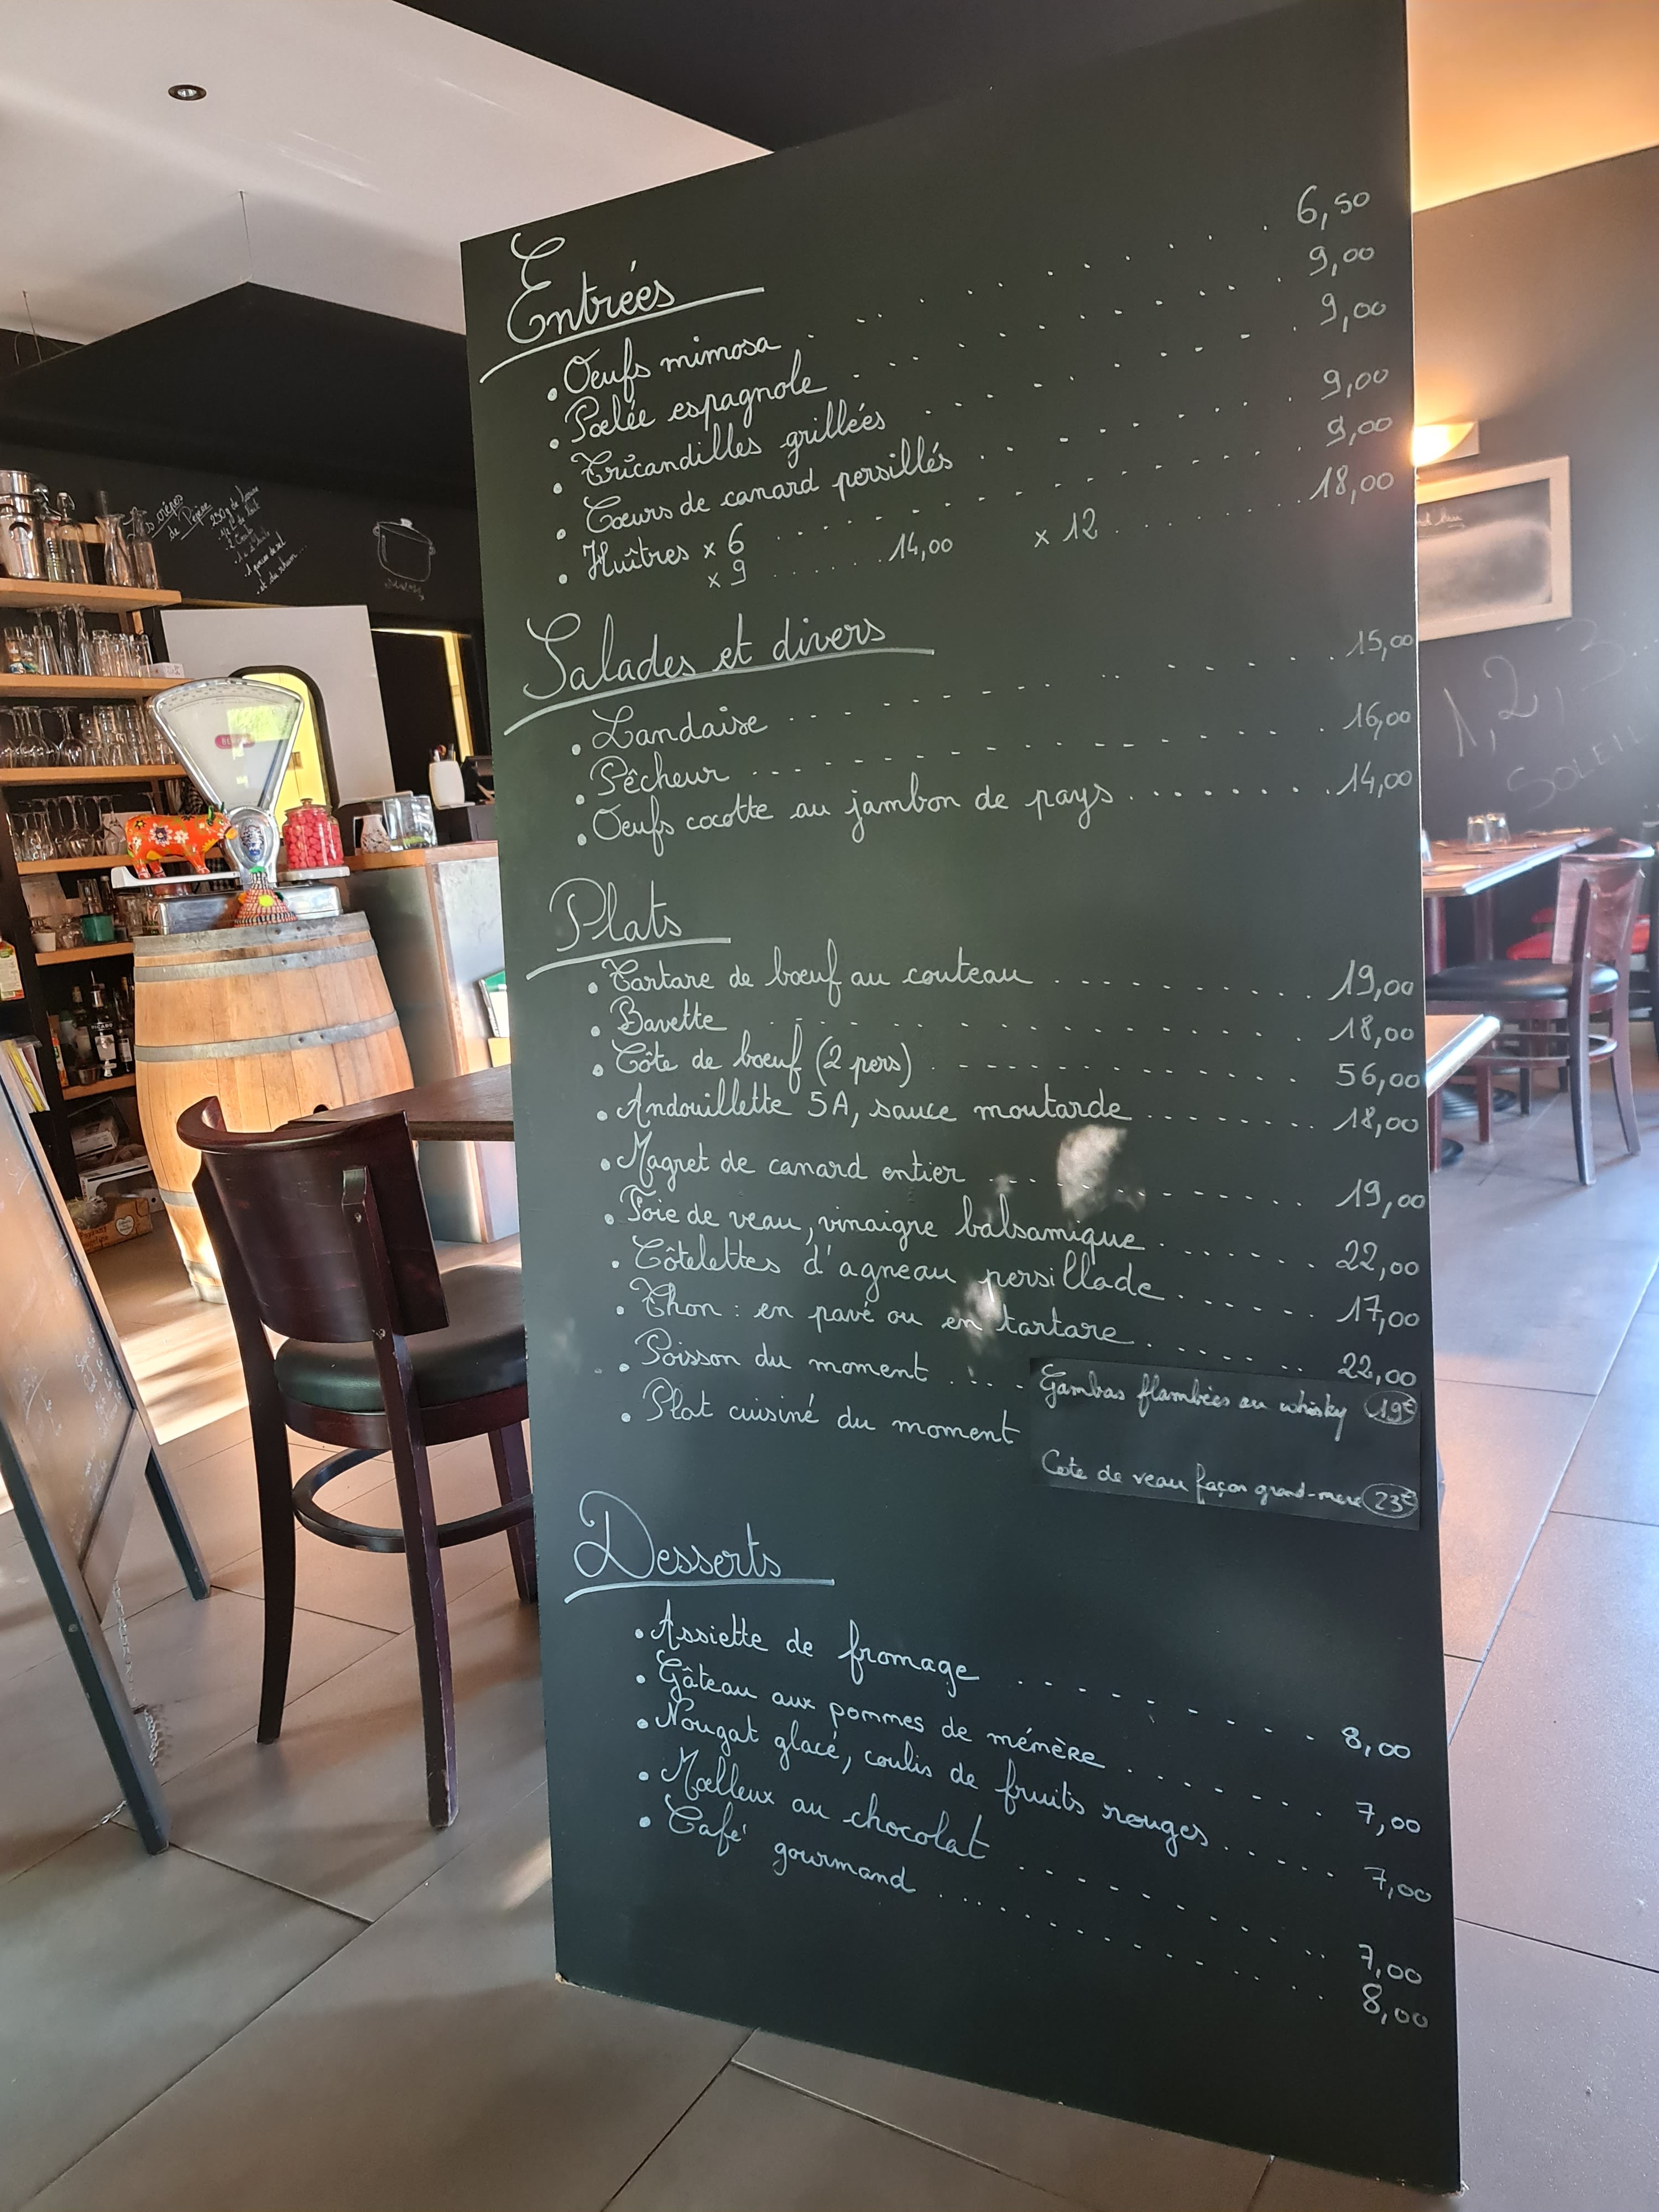 Entrées
• Oeufs mimosa . . . . . . . . . 6,50
• Poelée espagnole . . . . . . . . . 9,00
• Tricandilles grillées . . . . . . . . . 9,00
• Coeurs de canard persillés . . . . . . . . . 9,00
• Huîtres x 6 . . . . . . . . . 9,00
x 9 . . . . . . 14,00 x 12 . . . . . . . 18,00
Salades et divers
• Landaise . . . . . . . . . 15,00
• Pêcheur . . . . . . . . . 16,00
• Oeufs cocotte au jambon de pays . . . . . . . . 14,00
Plats
• Tartare de boeuf au couteau . . . . . . . . . 19,00
• Bavette . . . . . . . . . 18,00
• Côte de boeuf (2 pers) . . . . . . . . . 56,00
• Andouillette 5A, sauce moutarde . . . . . . . . 18,00
• Magret de canard entier . . . . . . . . . 19,00
• Foie de veau, vinaigre balsamique . . . . . . 22,00
• Côtelettes d'agneau persillade . . . . . . 17,00
• Thon : en pavé ou en tartare . . . . . . 22,00
• Poisson du moment . . . . Gambas flambées au whisky 19€
• Plat cuisiné du moment
Cote de veau façon grand-mere 23€
Desserts
• Assiette de fromage . . . . . . . . . 8,00
• Gâteau aux pommes de mémère . . . . . . . 7,00
• Nougat glacé, coulis de fruits rouges . . . . . 7,00
• Moelleux au chocolat . . . . . . . . . 7,00
• Café gourmand . . . . . . . . . 8,00
1, 2, 3...
SOLEIL